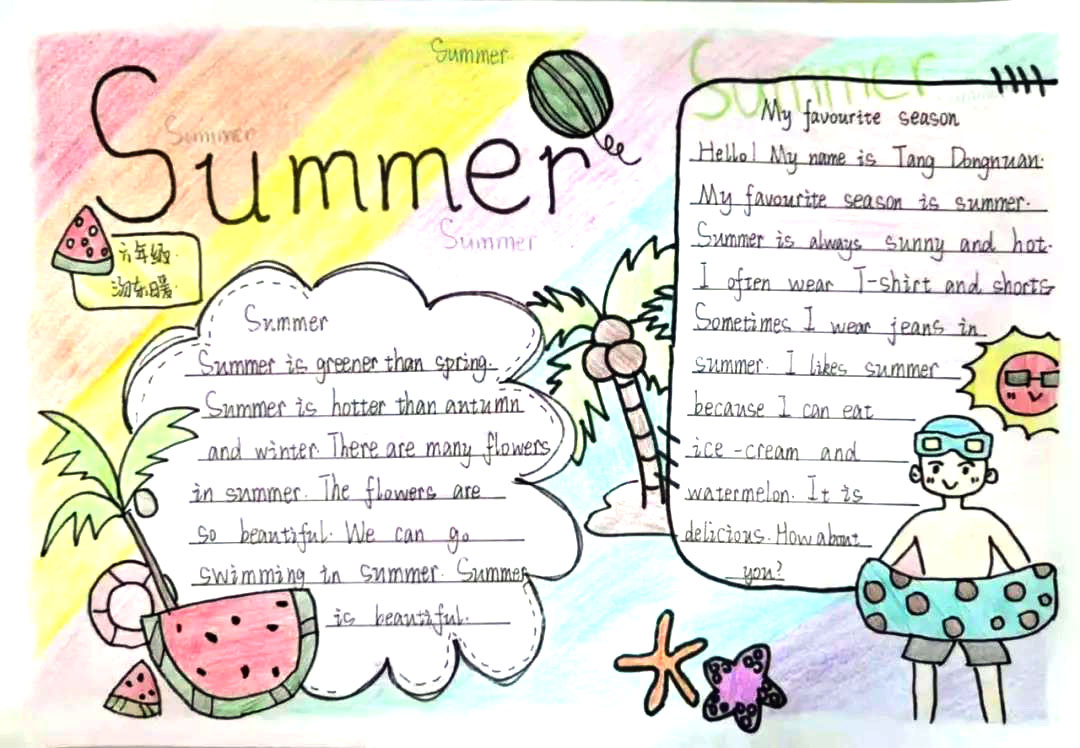 Summer
Summer
Summer
Summer
Summer
六年级
汤东暖
Summer
Summer is greener than spring.
Summer is hotter than autumn
and winter. There are many flowers
in summer. The flowers are
so beautiful. We can go
swimming in summer. Summer
is beautiful.
My favourite season
Hello! My name is Tang Dongnuan.
My favourite season is summer.
Summer is always sunny and hot.
I often wear T-shirt and shorts
Sometimes I wear jeans in
summer. I likes summer
because I can eat
ice-cream and
watermelon. It is
delicious. How about
you?